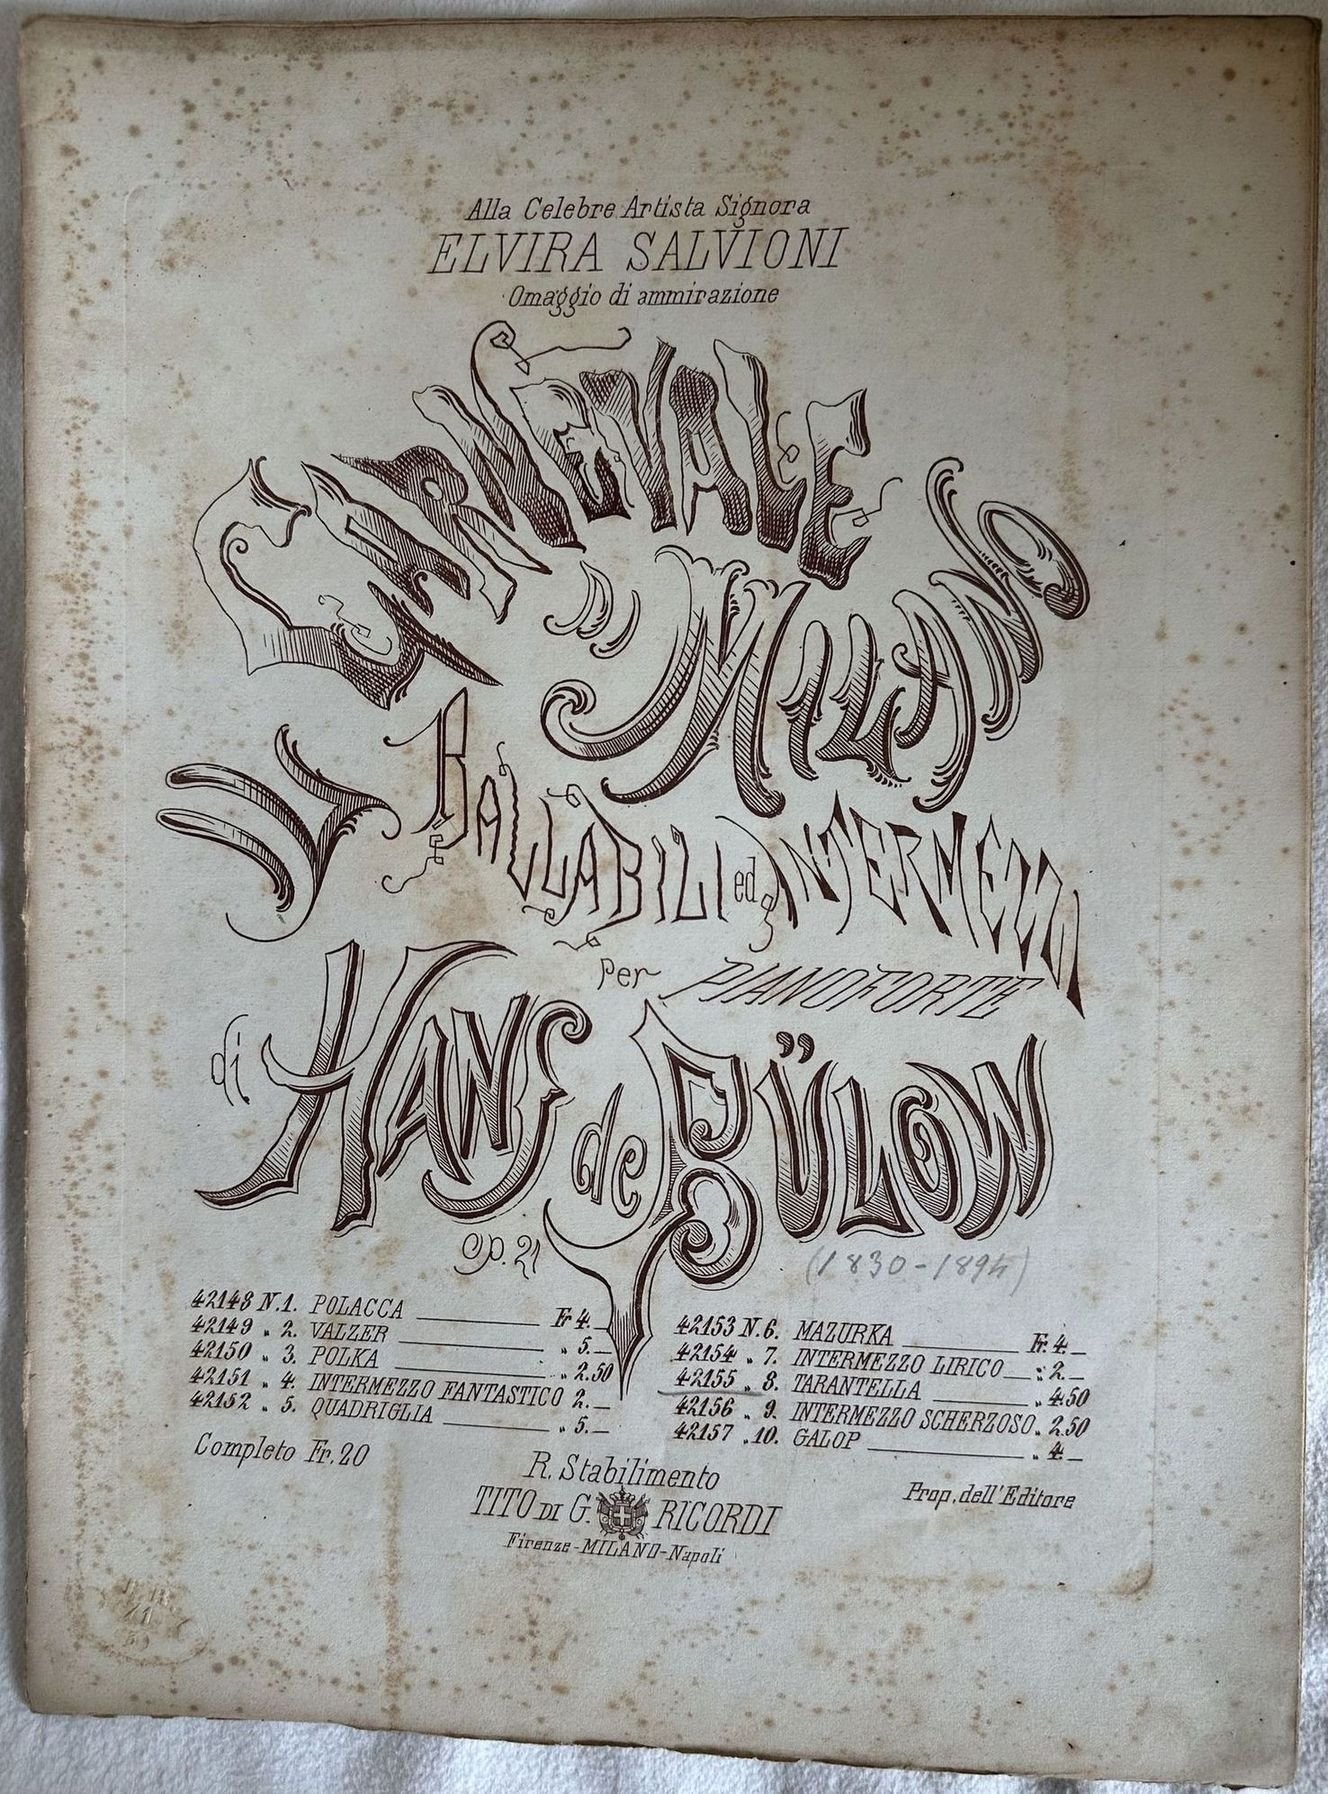 Alla Celebre Artista Signora
ELVIRA SALVIONI
Omaggio di ammirazione
CARNEVALE
DI MILANO
BALLABILI ed INTERMEZZI
per PIANOFORTE
di HANS de BÜLOW
Op. 21
(1830-1894)
42148 N.1. POLACCA Fr 4.
42149 „ 2. VALZER „ 5.
42150 „ 3. POLKA „ 2.50
42151 „ 4. INTERMEZZO FANTASTICO 2.
42152 „ 5. QUADRIGLIA „ 5.
42153 N.6. MAZURKA Fr. 4
42154 „ 7. INTERMEZZO LIRICO „ 2.
42155 „ 8. TARANTELLA „ 4.50
42156 „ 9. INTERMEZZO SCHERZOSO „ 2.50
42157 „ 10. GALOP „ 4.
Completo Fr. 20
R. Stabilimento
TITO DI G. RICORDI
Firenze-MILANO-Napoli
Prop. dell'Editore